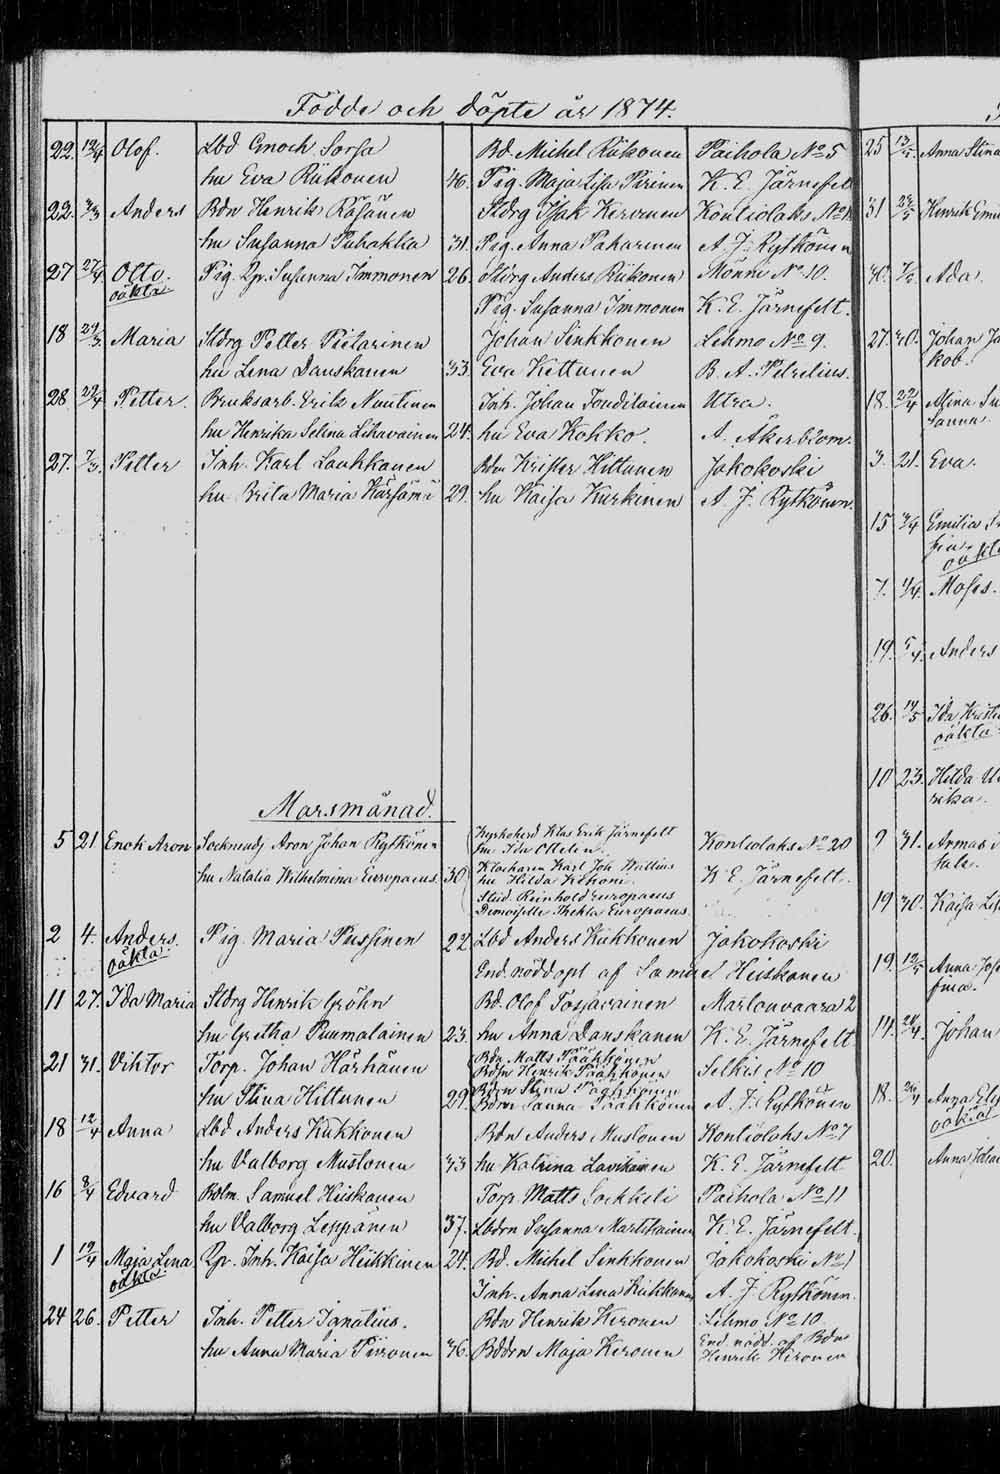 Födde och döpte år 1874.
22. 12/4 Olof. Lbd Enoch Sorsa Bd. Michel Riikonen Paihola No 5
hu Eva Riikonen 46. Pig. Maja Lisa Piirinen K. E. Järnefelt
22. 3/3 Anders Bdn Henrik Räsänen Stdrg Isak Kervinen Kontiolaks No
hu Susanna Puhakka 31. Pig. Anna Paharinen A. J. Rytkönen
27 27/4. Otto. Pig. Qp. Susanna Immonen 26. Stdrg Anders Riikonen Mönni No 10.
oäkta. Pig. Susanna Immonen K. E. Järnefelt.
18 29/3 Maria Stdrg Petter Pietarinen Johan Sinkkonen Lehmo No 9.
hu Lena Danskanen 33. Eva Kettunen B. A. Petrelius.
28 29/4 Petter. Bruksarb. Erik Nuutinen Inh. Johan Tenditainen Utra.
hu Henrika Selina Lihavainen 24. hu Eva Kokko. A. Åkerblom.
27. 7/3. Petter Inh. Karl Laakkonen Bdn Krister Hittunen Jakokoski
hu Brita Maria Kärsämä 29. hu Kaisa Kurkinen A. J. Rytkönen.
Marsmånad.
5 21 Enok Aron Sockneadj Aron Johan Rytkönen Kyrkoherd Klas Erik Järnefelt Kontiolaks No 20
fru Ida Ottelin.
hu Natalia Wilhelmina Europaeus. 30 Klockaren Karl Joh. Wallius K E. Järnefelt.
hu Hilda Kokoni.
Stud. Reinhold Europaeus
Demoiselle Thekla Europaeus.
2 4. Anders. Pig. Maria Pussinen 22 Lbd Anders Kukkonen Jakokoski
oäkta. End. nöddopt af Samuel Hiiskonen
11 27. Ida Maria Stdrg Henrik Gröhn Bd. Olof Tosjavainen Martonvaara 2
hu Gretha Puumalainen 23. hu Anna Danskanen K. E. Järnefelt
21 31. Viktor Torp. Johan Härkänen Bdn Matts Pääkkönen Selkis No 10
Bdsn Henrik Pääkkönen
hu Stina Hittunen 29. Bdrn Stina Pääkkönen A. J. Rytkönen
Bdrn Sanna Pääkkönen
18 12/4 Anna Lbd Anders Kukkonen Bdn Anders Mustonen Kontiolaks No 7
hu Valborg Mustonen 33 hu Katrina Lavikainen K. E. Järnefelt
16 8/4 Edvard Bolm. Samuel Hiiskanen Torp Matts Sockkeli Paihola No 11
hu Valborg Leppänen 37. Lbdrn Susanna Martikainen K. E. Järnefelt.
1 19/4 Maja Lena Qp. Inh. Kaisa Heikkinen 24. Bd. Michel Sinkkonen Jakokoski No 1
oäkta. Inh. Anna Lena Kukkonen A. J. Rytkönen.
24 26. Petter Inh. Petter Ignatius. Bdn Henrik Keronen Lehmo No 10
hu Anna Maria Piironen 36. Bddrn Maja Keronen End. nödd. af Bdn
Henrik Hironen
25 13/5. Anna Stina
31 24/5 Henrik Emil
30. Ada.
27. 30. Johan Ja
kob.
18. 22/4 Alina Su
sanna.
3. 21. Eva.
15 Emilia So
fia.
oäkta
7. Moses.
19. 5/4. Anders
26. 14/5 Ida Kristi
oäkta.
10 23. Hilda Ul
rika.
9 31. Armas i
tale.
19 30. Kaisa Lis
19. 12/5 Anna Jose
fina.
14. Johan
18. Anna Elis
oäkta
20. Anna Johan